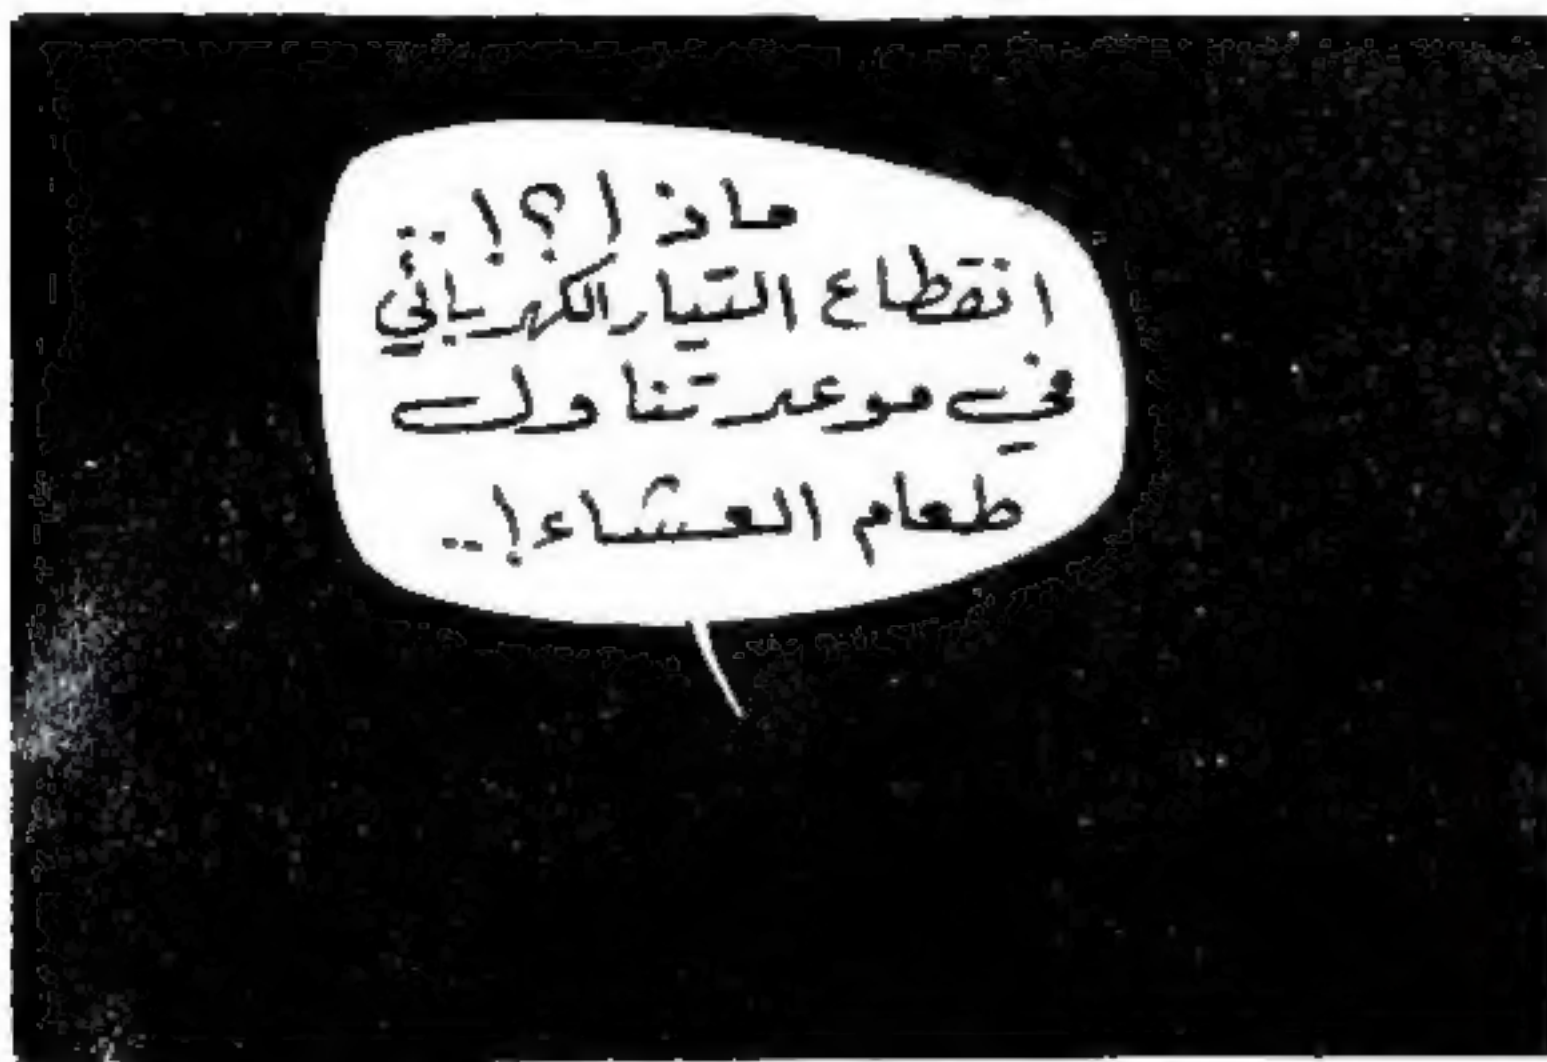 ماذا؟!
انقطاع التيار الكهربائي
في موعد تناول
طعام العشاء!..